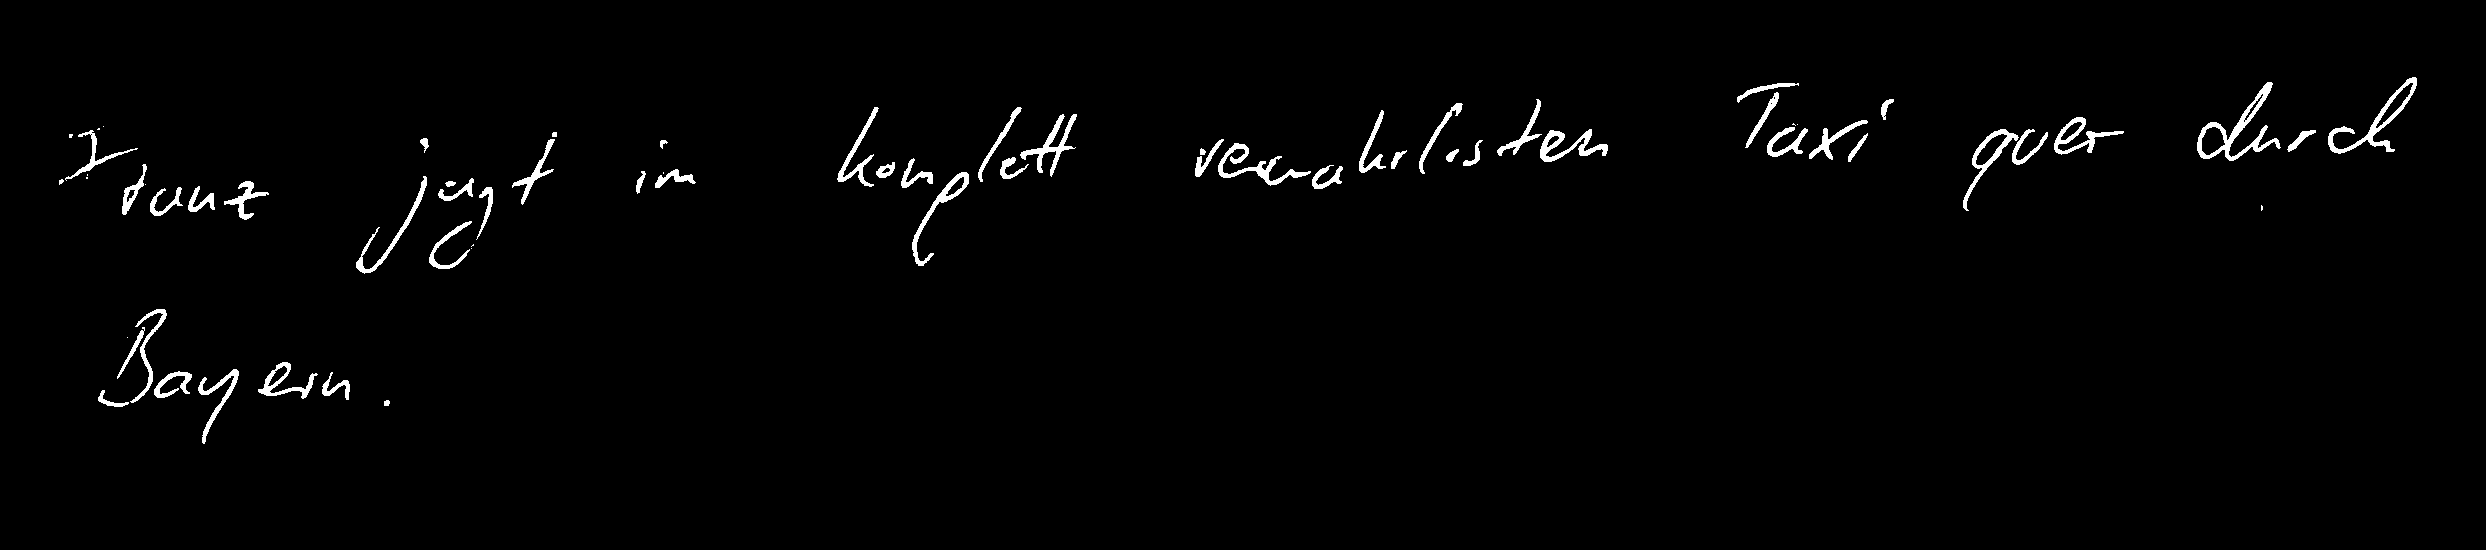 Franz jagt im komplett verwahrlosten Taxi quer durch
Bayern.